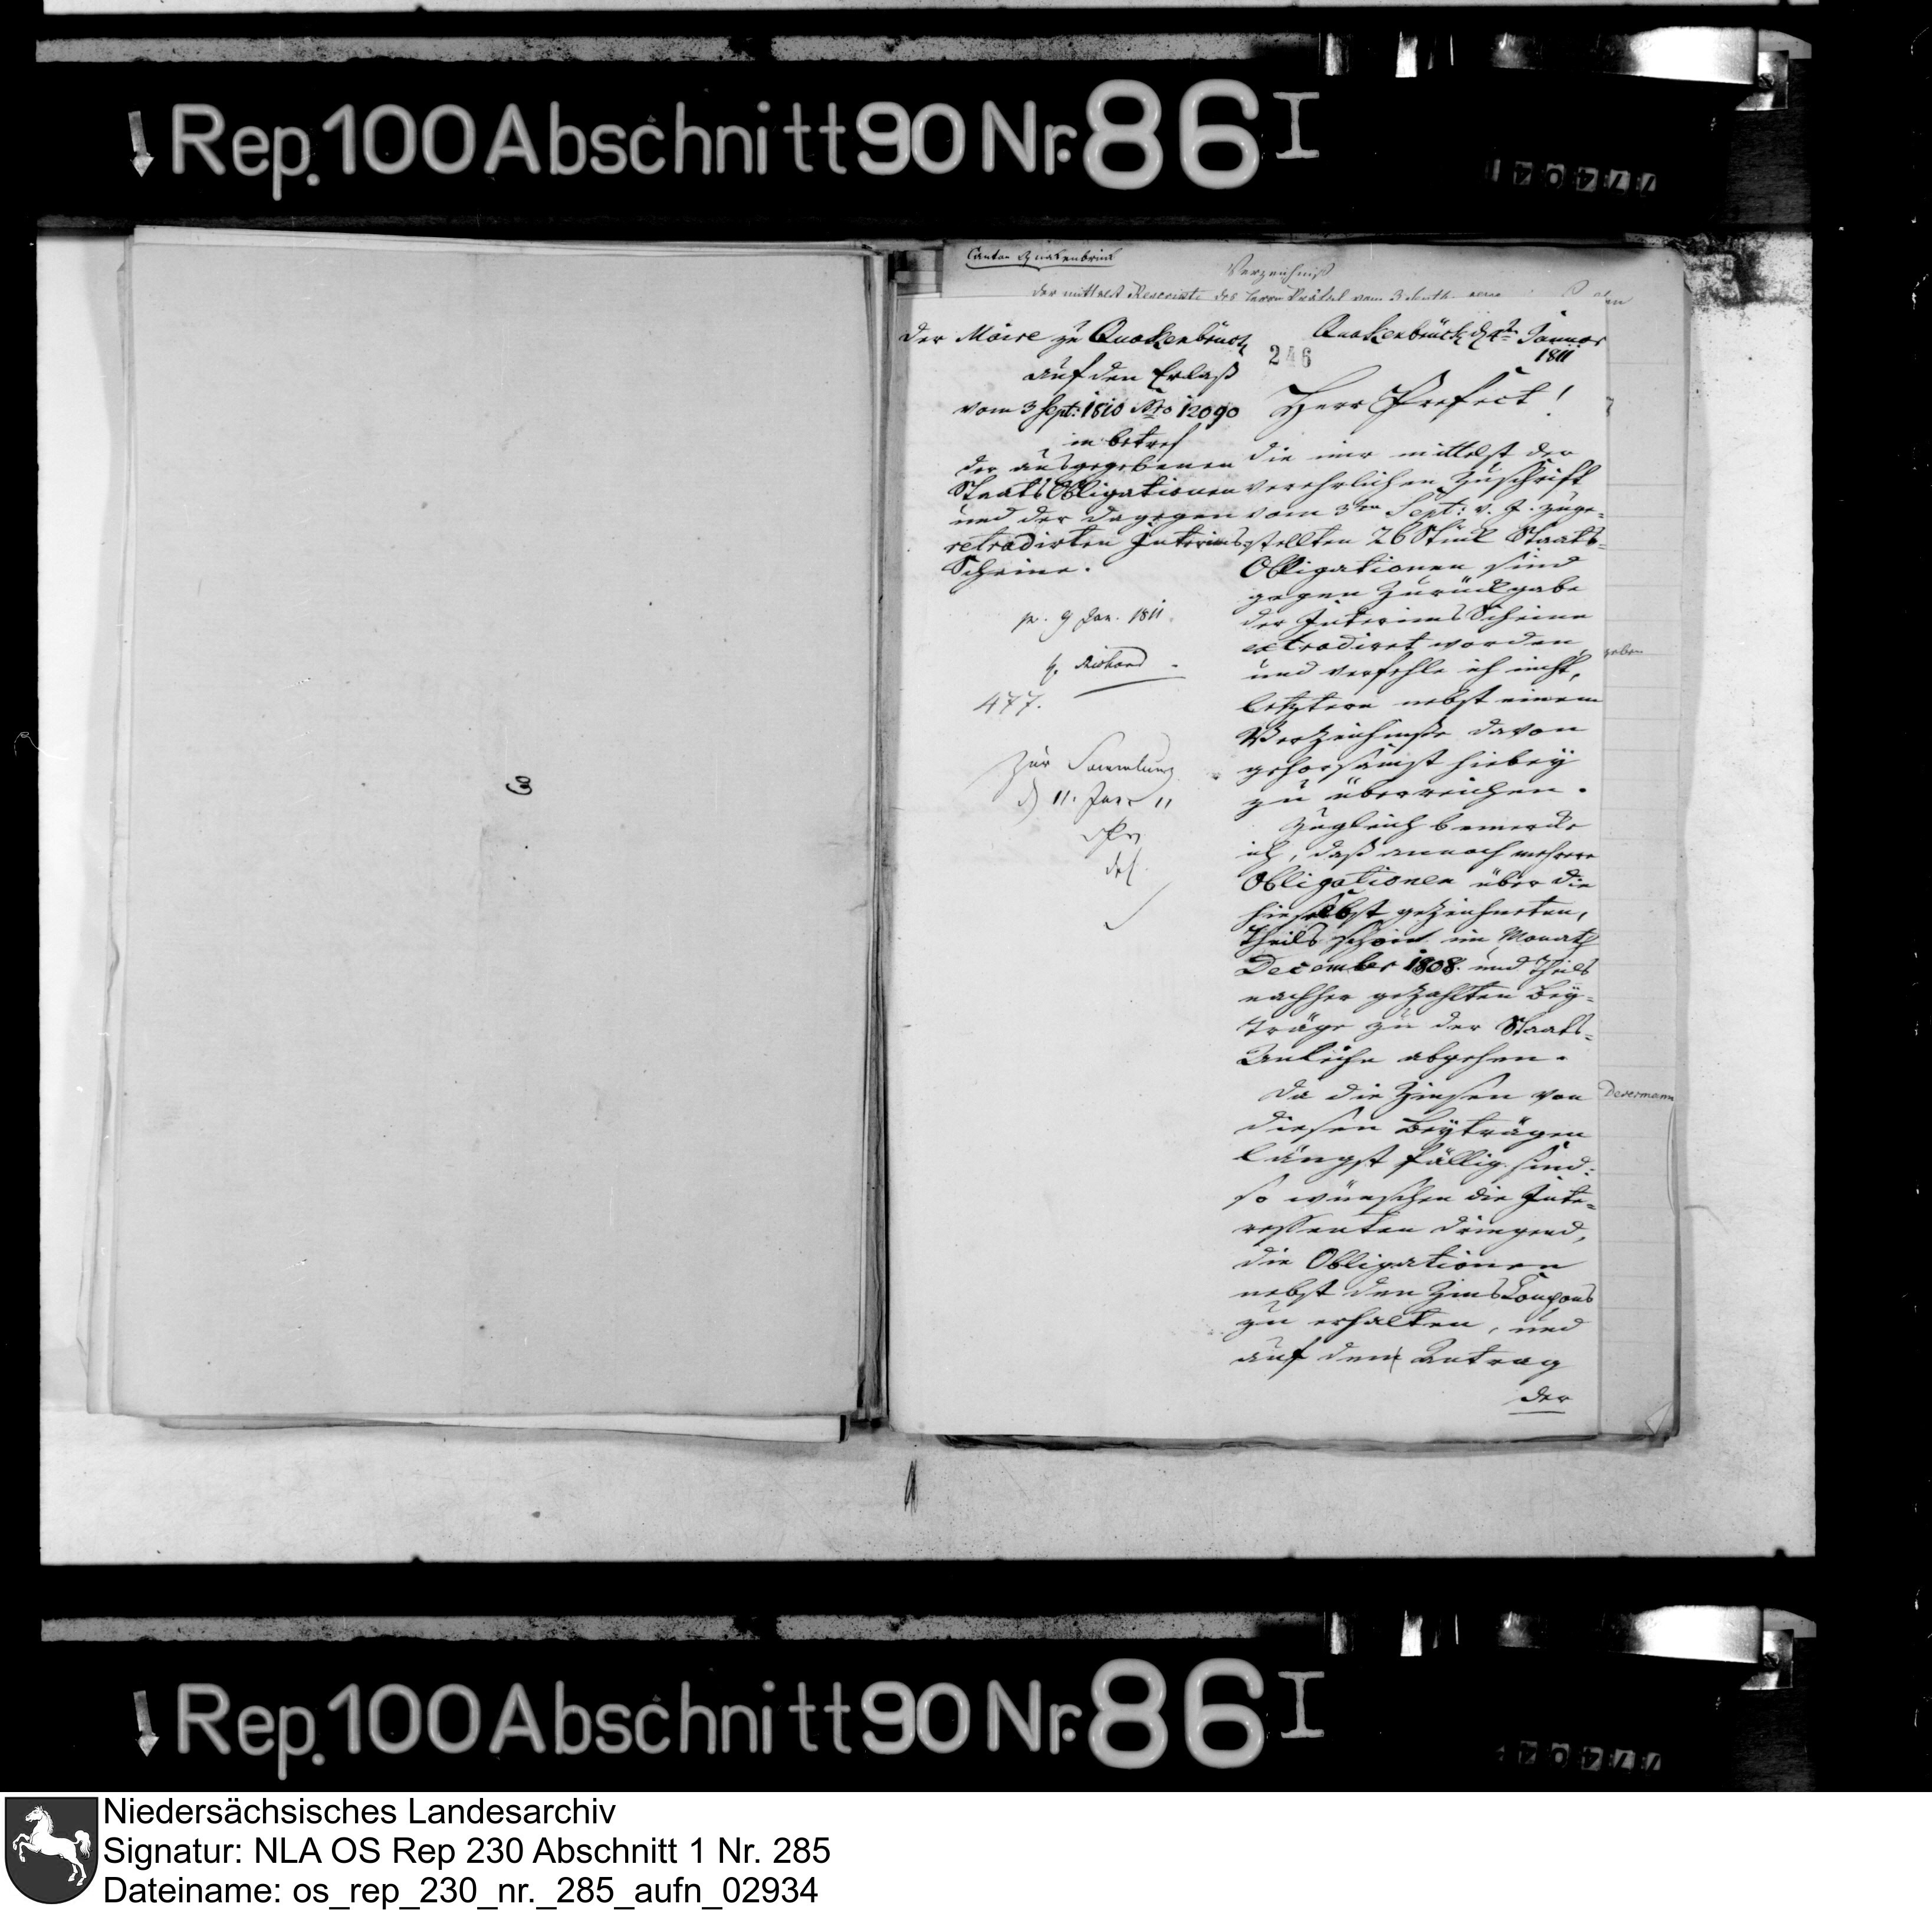 Rep. 100 Abschnitt 90 Nr. 86 I
Canton Quakenbrück
Verzeichniß
der mittelst Rescripts des Herrn Präfect vom 3 Septb.
Der Maire zu Quakenbrück
auf den Erlaß
vom 3 Sept: 1810 Nro 12090
in betref
der ausgegebenen
Staats Obligationen
und der dagegen
retradirten Interims
Scheine.
pr. 9 Jan. 1811
477.
Zur Sammlung
d 11. Jan 11
Quakenbrück d Januar
1811
246
Herr Präfect!
die mir mittelst der
verehrlichen Zuschrift
vom 3ten Sept: v. J. zuge-
stellten 26 Stück Staats-
Obligationen sind
gegen Zurückgabe
der Interims Scheine
extradiret worden,
und verfehle ich nicht,
letztere nebst einem
Verzeichnisse davon
gehorsamst hiebey
zu überreichen.
Zugleich bemerke
ich, daß annoch mehrere
Obligationen über die
hieselbst gezeichneten,
theils schon im Monath
December 1808. und theils
nachher gezahlten Bey-
träge zu der Staats-
Anleihe abgehen.
Da die Zinsen von
diesen Beyträgen
längst fällig sind:
so wünschen die Inte-
ressenten dringend,
die Obligationen
nebst den Zins Coupons
zu erhalten, und
auf dem Antrag
der
geben
DeVermann
Rep. 100 Abschnitt 90 Nr. 86 I
Niedersächsisches Landesarchiv
Signatur: NLA OS Rep 230 Abschnitt 1 Nr. 285
Dateiname: os_rep_230_nr._285_aufn_02934